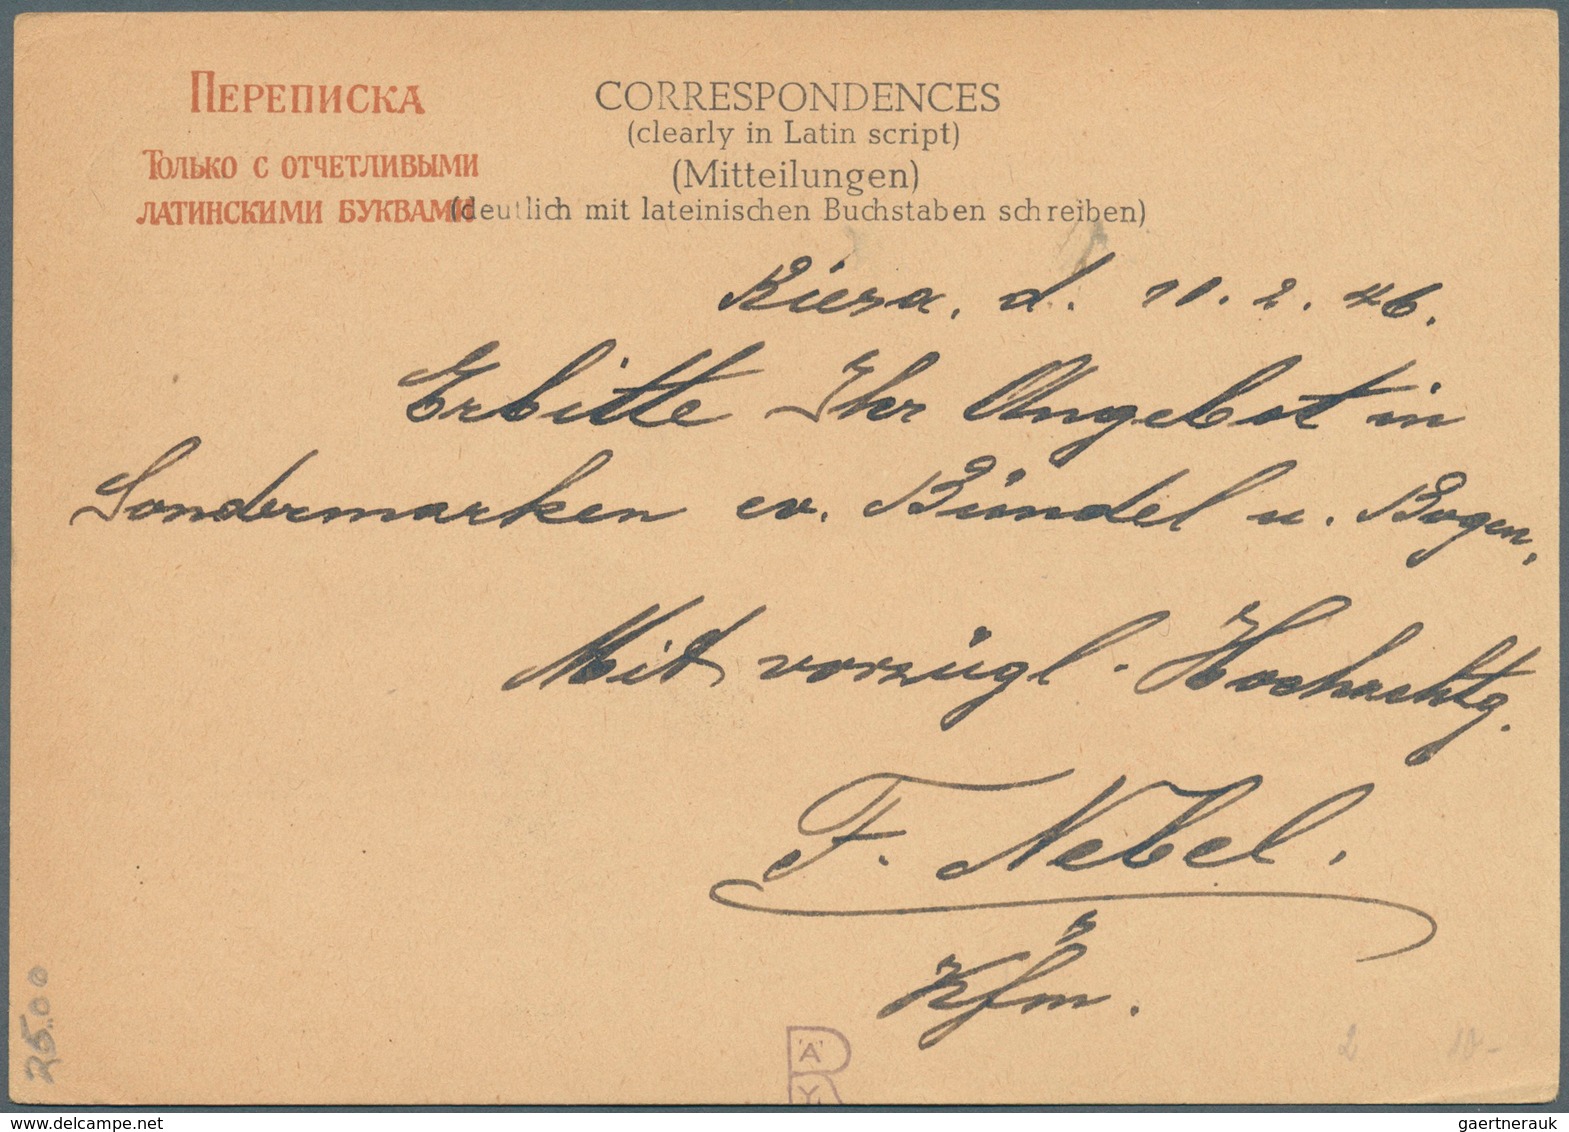 ПЕРЕПИСКА
ТОЛЬКО С ОТЧЕТЛИВЫМИ
ЛАТИНСКИМИ БУКВАМИ
CORRESPONDENCES
(clearly in Latin script)
(Mitteilungen)
(deutlich mit lateinischen Buchstaben schreiben)
Riesa, d. 11. 2. 46.
Erbitte Ihr Angebot in
Sondermarken ev. Bündel u. Bogen,
Mit vorzügl. Hochachtg.
F. Nebel.
Kfm.
25.00
RAY
2 10-
gaertnerauk
delcampe.net